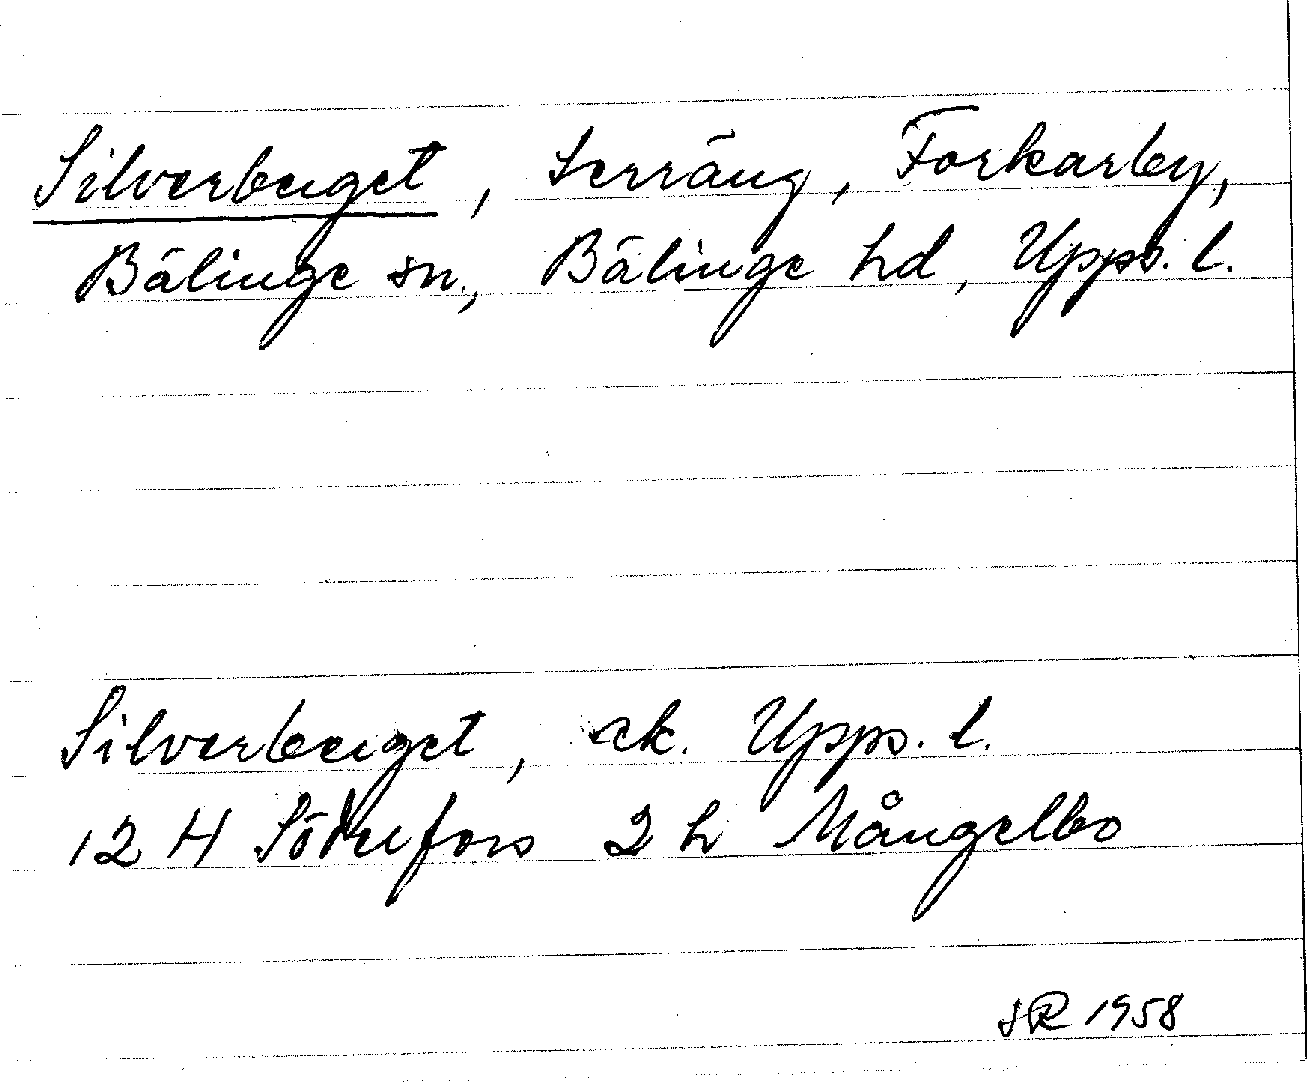 Silverberget, terräng, Forkarby,
Bälinge sn., Bälinge hd, Upps. l.
Silverberget, ek. Upps. l.
12 H Söderfors 2 h Mångelbo
SR 1958